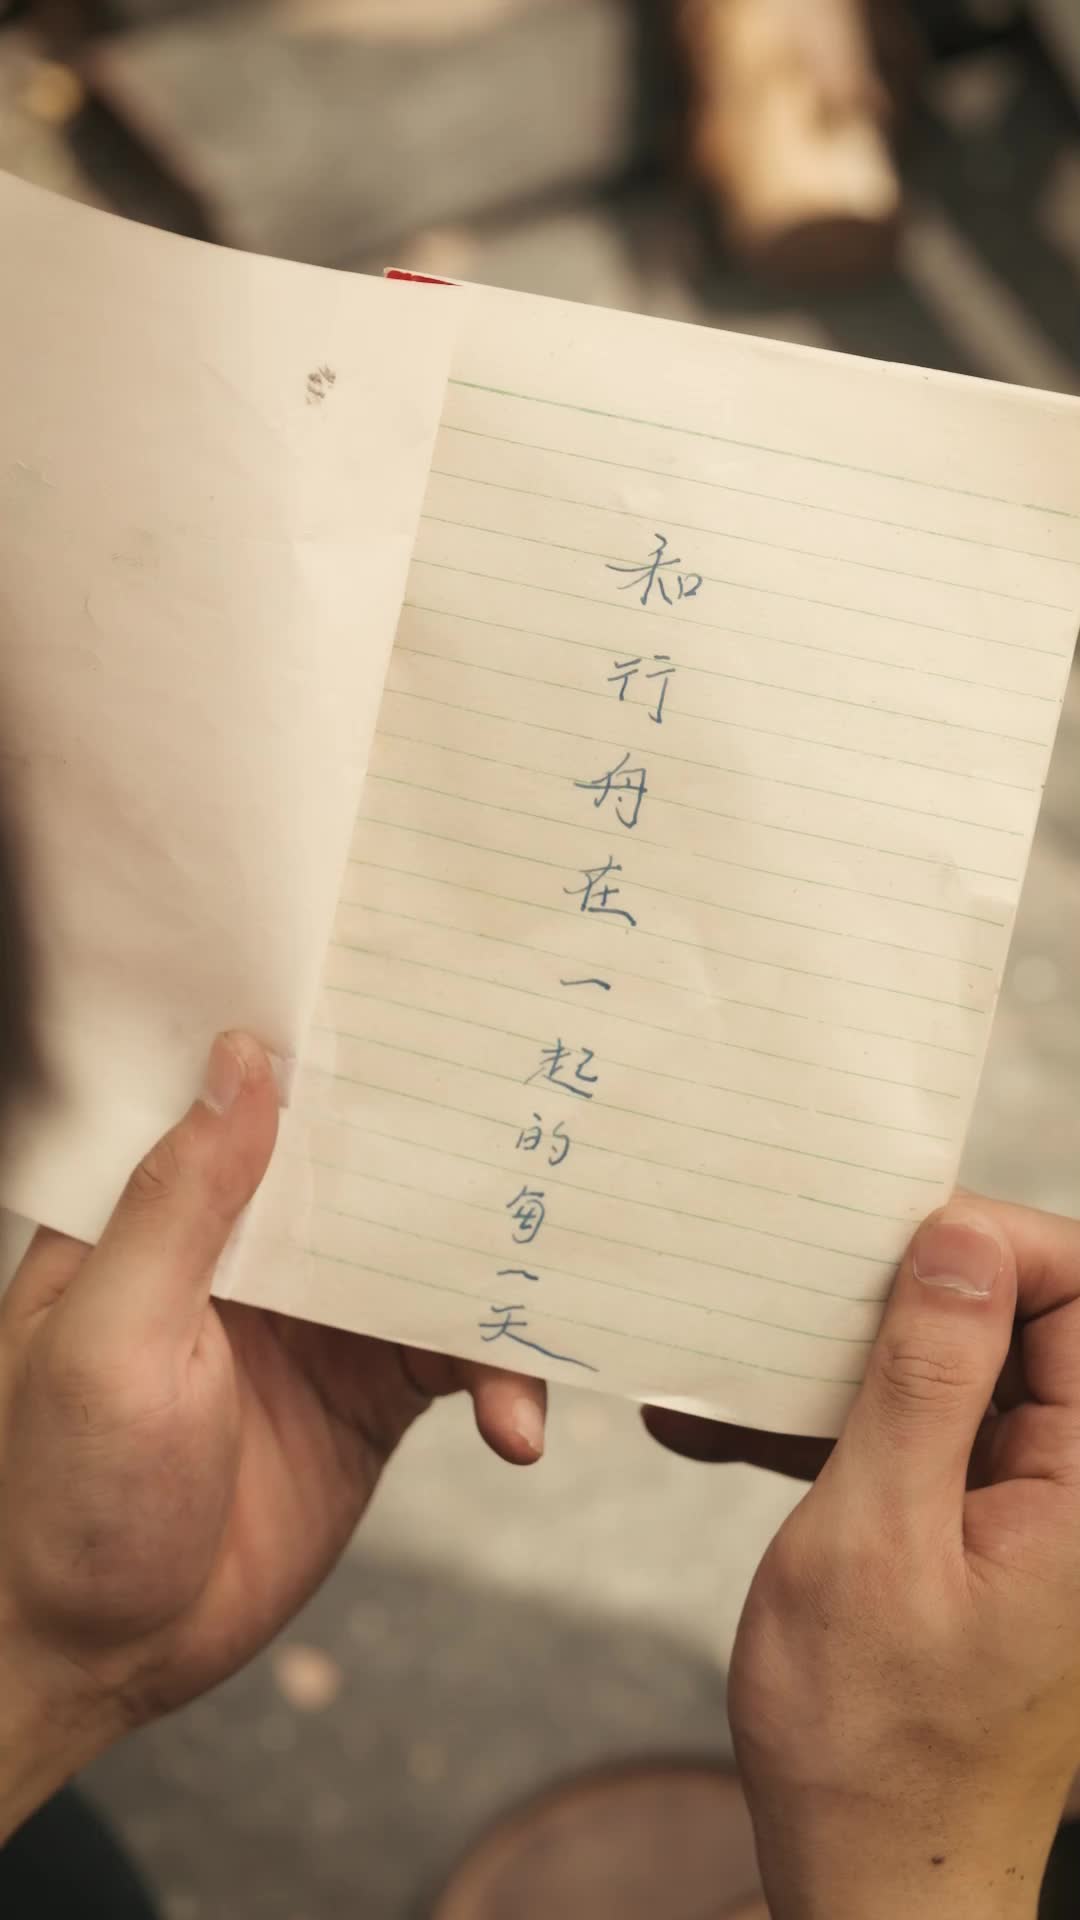 和行舟在一起的每一天